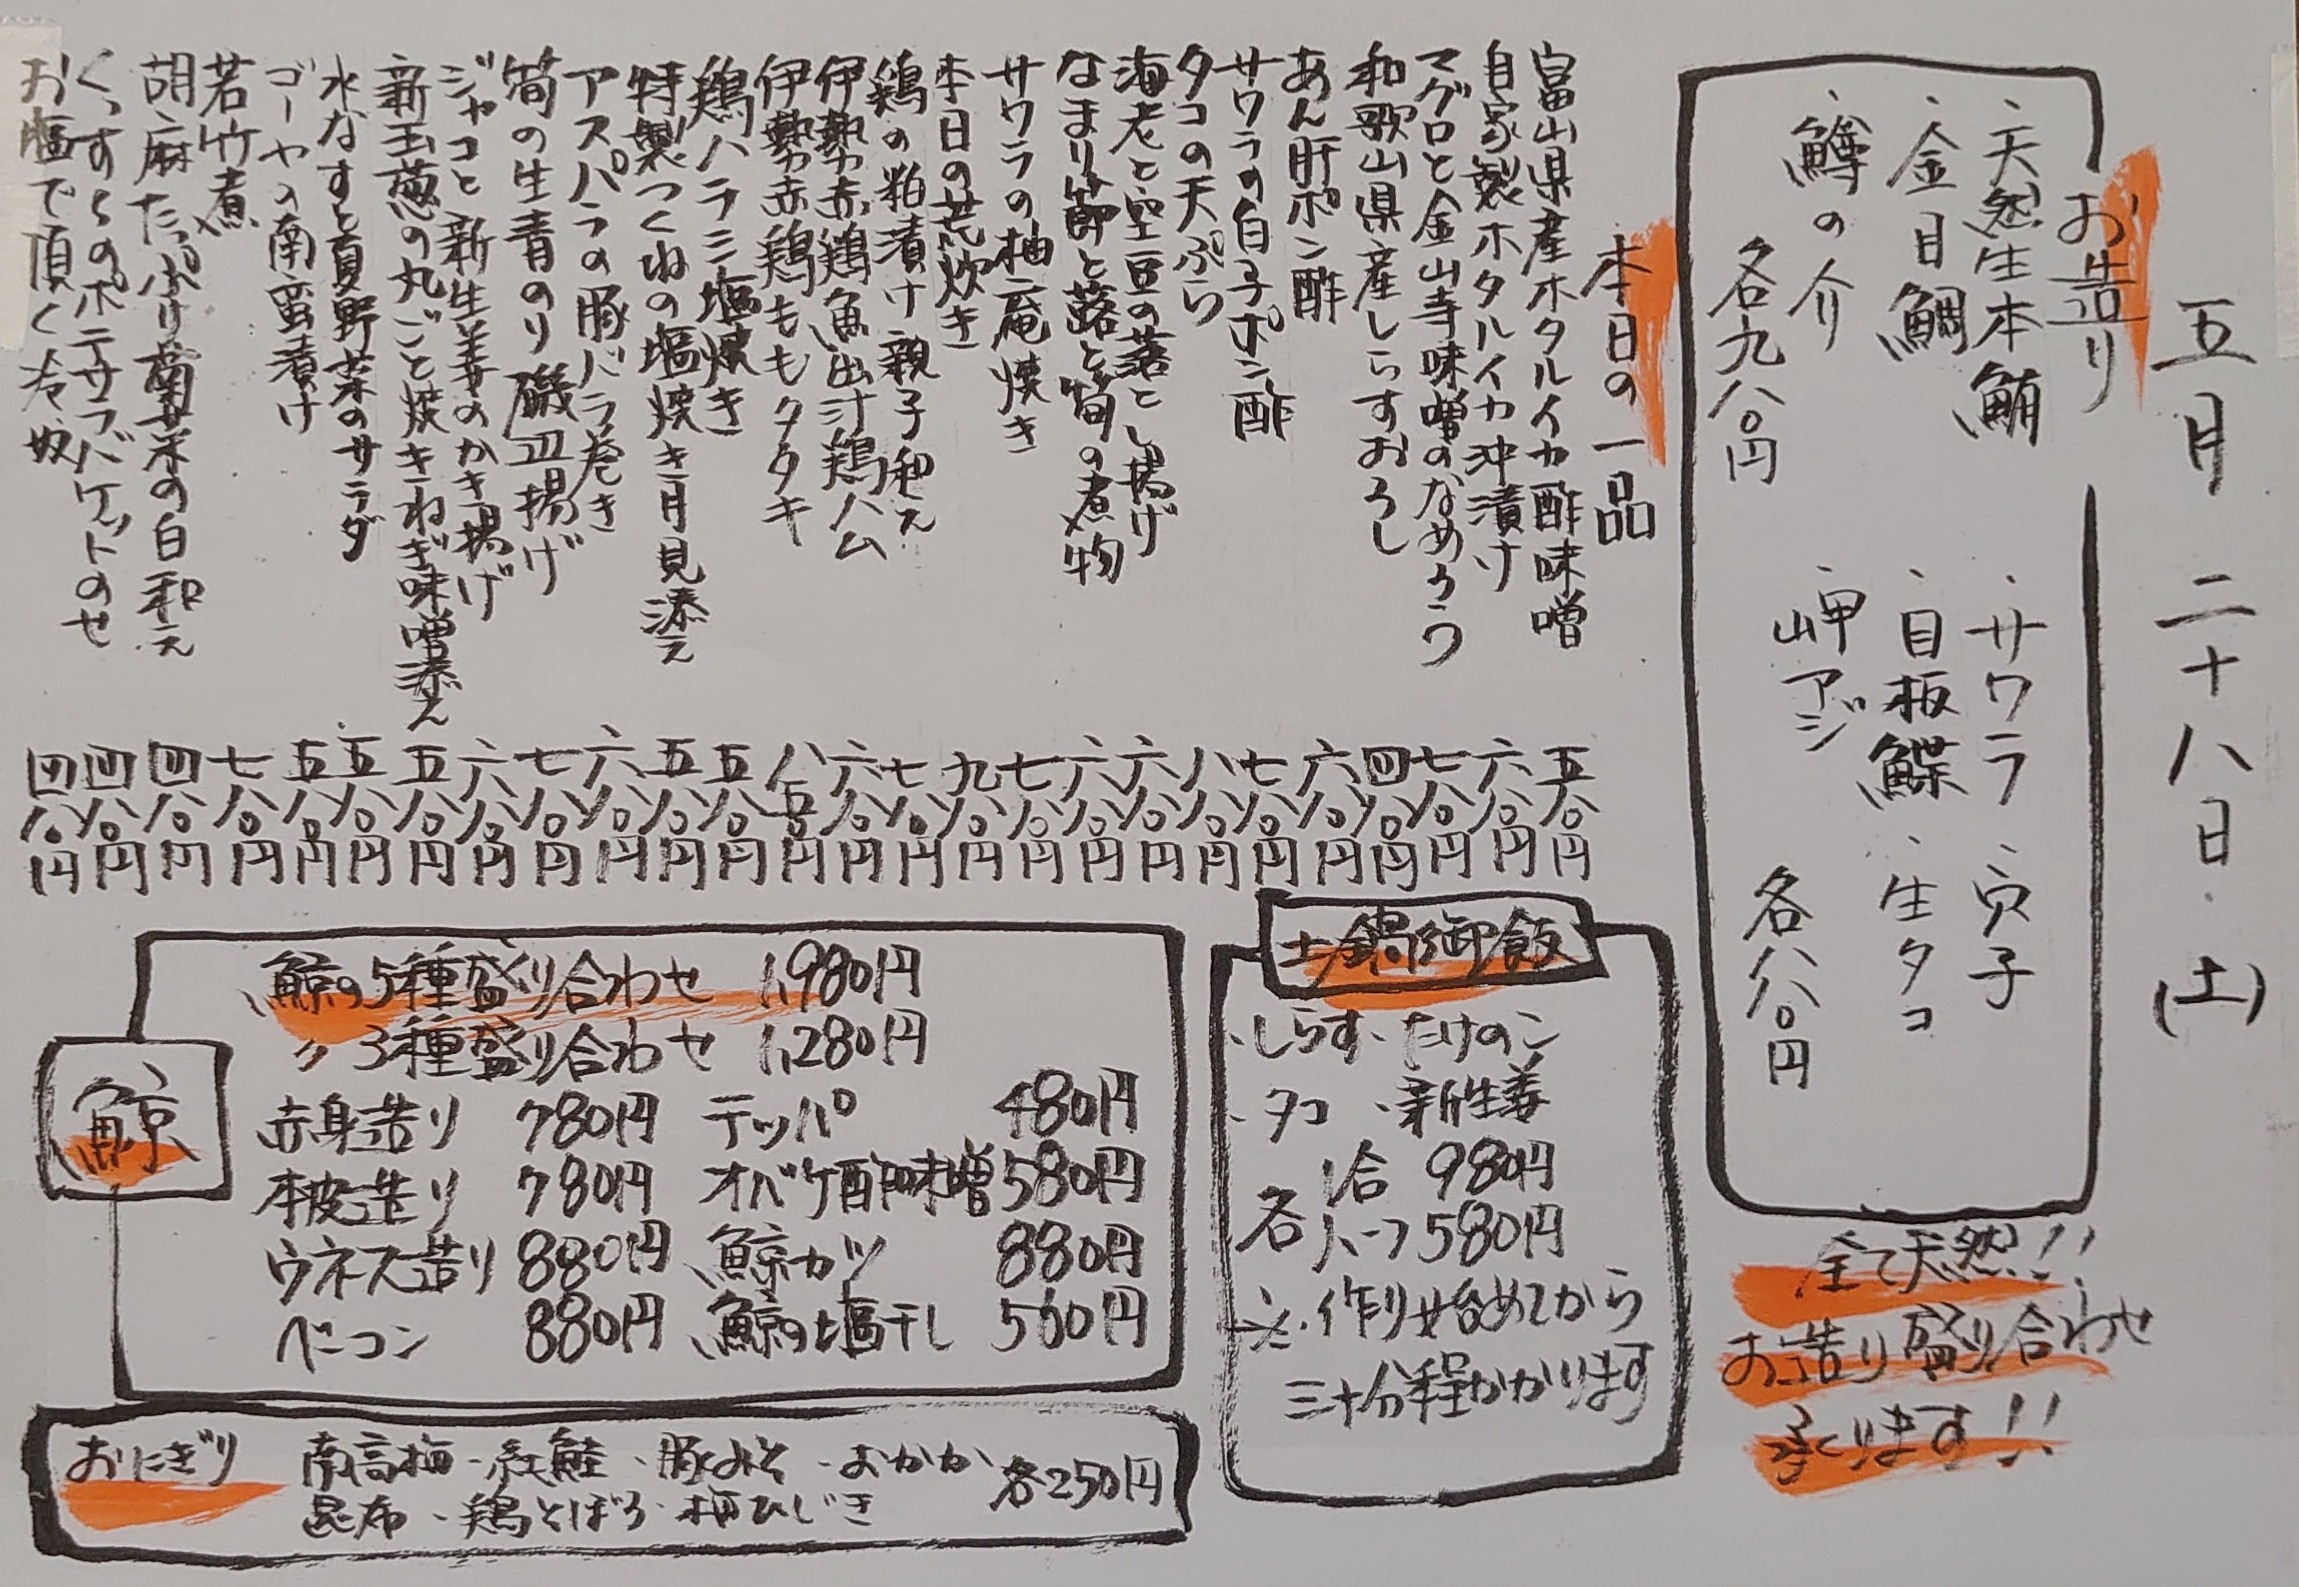 五月二十八日(土)
お造り
・天然生本鮪
・金目鯛
・鱒の介
各九八〇円
・サワラ ・穴子
・目板鰈 ・生タコ
・岬アジ
各八八〇円
全て天然!!
お造り盛り合わせ
承ります!!
本日の一品
富山県産ホタルイカ酢味噌 五八〇円
自家製ホタルイカ沖漬け 六八〇円
マグロと金山寺味噌のなめろう 七八〇円
和歌山県産しらすおろし 四八〇円
あん肝ポン酢 六八〇円
サワラの白子ポン酢 七八〇円
タコの天ぷら 八八〇円
海老と空豆の落とし揚げ 六八〇円
なまり節と蕗と筍の煮物 六八〇円
サワラの柚庵焼き 七八〇円
本日の荒炊き 九八〇円
鶏の粕漬け親子和え 七八〇円
伊勢赤鶏魚出汁鶏ハム 六八〇円
伊勢赤鶏ももタタキ 八五〇円
鶏ハラミ塩焼き 五八〇円
特製つくねの塩焼き月見添え 五八〇円
アスパラの豚バラ巻き 六八〇円
筍の生青のり磯辺揚げ 七八〇円
ジャコと新生姜のかき揚げ 六八〇円
新玉葱の丸ごと焼きねぎ味噌添え 五八〇円
水なすと夏野菜のサラダ 五八〇円
ゴーヤの南蛮漬け 五八〇円
若竹煮 七八〇円
胡麻たっぷり菊菜の白和え 四八〇円
くっすらのポテサラバケットのせ 四八〇円
お塩で頂く冷奴 四八〇円
土鍋御飯
・しらす ・たけのこ
・タコ ・新生姜
各 1合 980円
ハーフ 580円
※作り始めてから
三十分程かかります
鯨
鯨の5種盛り合わせ 1,980円
〃 3種盛り合わせ 1,280円
赤身造り 780円 テッパ 480円
本皮造り 780円 オバケ酢味噌 580円
ウネス造り 880円 鯨カツ 880円
ベーコン 880円 鯨の塩干し 560円
おにぎり 南高梅・紅鮭・豚みそ・おかか
昆布・鶏そぼろ・梅ひじき 各250円